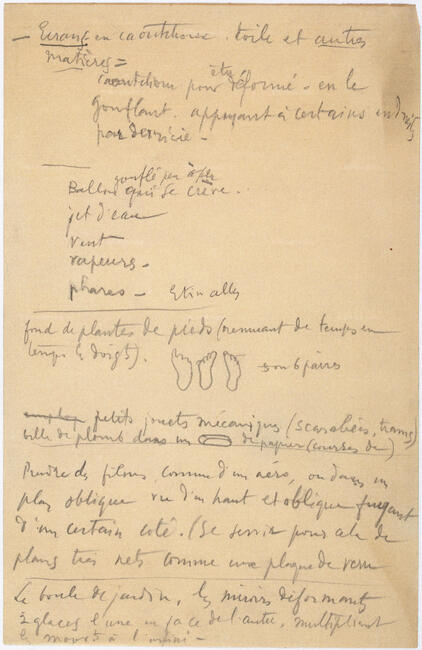 — Ecrans en caoutchouc. toile et autres
matières =
caoutchouc pour être déformé – en le
gonflant. appuyant à certains endroits
par derrière –
Ballon gonflé peu à peu
qui se crève..
jet d'eau
vent
vapeurs –
phares – Etincelles
fond de plantes de pieds (remuant de temps en
temps les doigts). 5 ou 6 paires
petits jouets mécaniques (scarabées, trams)
bille de plomb dans un de papier (courses de)
Prendre des films, comme d'un aéro, ou dans un
plan oblique vu d'en haut et oblique fuyant
d'un certain coté. (Se servir pour cela de
plans tres nets comme une plaque de verre
La boule de jardin, les miroirs déformants
2 glaces l'une en face de l'autre, multipliant
à l'infini –